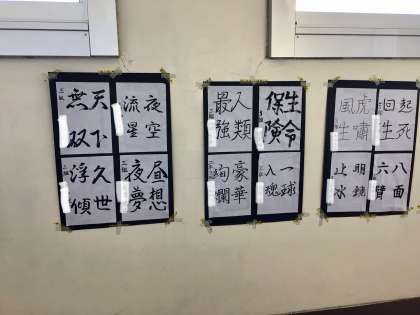 夜空
流星
天下
無双
昼想
夜夢
久世
浮傾
生命
保険
人類
最強
一球
入魂
豪華
絢爛
起死
回生
虎嘯
風生
八面
六臂
明鏡
止水